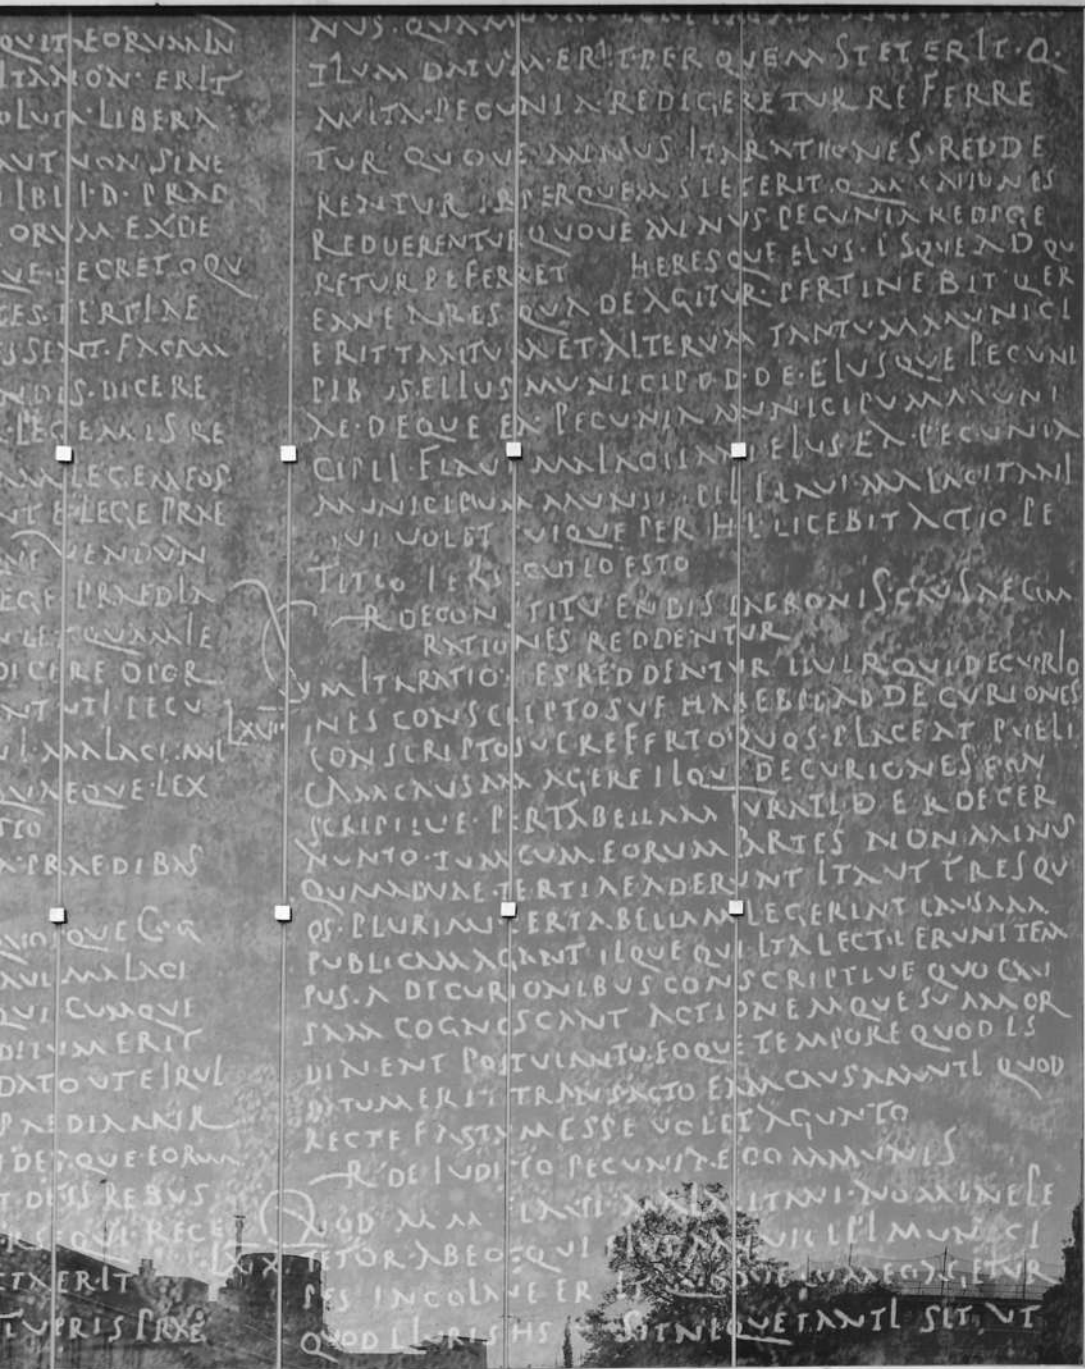 QVIT EORVM IN
ITA NON ERIT
OLVTA LIBERA
AVT NON SINE
IBI I D PRAE
ORVM EX DE
VE DECRETO QV
TERTIAE
SSENT FACIAN
NDIS DICERE
LEGEM IS RE
AM LEGEM EOS
NT E LEGE PRAE
VENDVN
EGE PRAEDIA
QVAM LE
DICERE OPOR
NT VTI PECV
MALACI
NEQVE LEX
PRAEDIBVS
QVE COG
AVI MALACI
QVI CVMQVE
DITVM ERIT
DATO VTEI QVI
PRAEDIA
IDEI QVE EORVM
T DE IS REBVS
QVI RECE
CTA ERIT
IVRIS PRAE
NVS QVAM
ILVM DATVM ERIT PER QVEM STETERIT Q
M ITA PECVNIA REDIGERETVR REFERRE
TVR QVOVE MINVS ITA RATIONES REDDE
RENTVR IS PER QVEM STETERIT Q M RATIONES
REDDERENTVR QVOVE MINVS PECVNIA REDIGE
RETVR REFERRET HERESQVE EIVS ISQVE AD QV
EM EA RES QVA DE AGITVR PERTINEBIT Q ER
ERIT TANTVM ET ALTERVM TANTVM MVNICI
PIB EIIVS MVNICIPI D D D E EIVSQVE PECVNI
AE DEQVE EA PECVNIA MVNICIPVM MVNI
CIPII FLAVI MALACITANI EIVS EA PECVNIA
MVNICIPVM MVNICIPII FLAVI MALACITANI
QVI VOLET CVIQVE PER H L LICEBIT ACTIO PE
TITIO PERSECVTIO ESTO
R DE CONSTITVENDIS PATRONIS CAVSAE CVM
RATIONES REDDENTVR
CVM ITA RATIONES REDDENTVR II VIR QVI DECVRIO
LXVIII NES CONSCRIPTOSVE HABEBIT AD DECVRIONES
CONSCRIPTOSVE REFERTO QVOS PLACEAT PVBLI
CAM CAVSAM AGERE IIQVE DECVRIONES CON
SCRIPTIVE PER TABELLAM IVRATI D E R DECER
NVNTO TVM CVM EORVM PARTES NON MINVS
QVAM DVAE TERTIAE ADERVNT ITA VT TRES QV
OS PLVRIMI PER TABELLAM LEGERINT CAVSAM
PVBLICAM AGANT IIQVE QVI ITA LECTI ERVNT TEM
PVS A DECVRIONIBVS CONSCRIPTIVE QVO CAV
SAM COGNOSCANT ACTIONEMQVE SVAM OR
DINENT POSTVLANTO EOQVE TEMPORE QVOD IS
DATVM ERIT TRANSACTO EAM CAVSAM VTI QVOD
RECTE FACTVM ESSE VOLET AGVNTO
R DE IVDICIO PECVNIAE COMMVNIS
QVOD M M FLAVI MALACITANI NOMINE PE
LXIX TETVR AB EO QVI EIVS MVNICIPI MVNICI
PES INCOLAVE ERIT QVODVE CVM EO AGETVR
QVOD IVRIS HS SIT NEQVE TANTI SIT VT